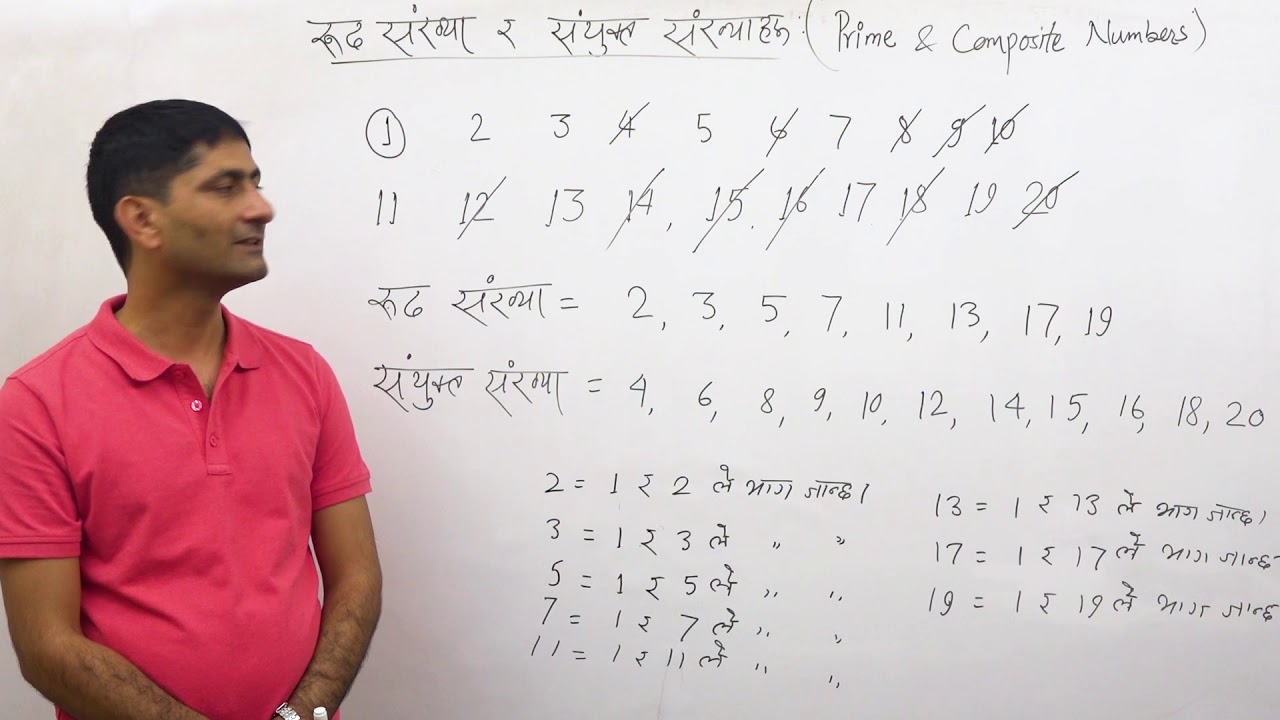 रूढ संख्या र संयुक्त संख्याहरू : ( Prime & Composite Numbers )
1 2 3 4 5 6 7 8 9 10
11 12 13 14, 15. 16 17 18 19 20
रूढ संख्या = 2, 3, 5, 7, 11, 13, 17, 19
संयुक्त संख्या = 4, 6, 8, 9, 10, 12, 14, 15, 16, 18, 20
2 = 1 र 2 ले भाग जान्छ।
3 = 1 र 3 ले " "
5 = 1 र 5 ले " "
7 = 1 र 7 ले " "
11 = 1 र 11 ले " "
13 = 1 र 13 ले भाग जान्छ।
17 = 1 र 17 ले भाग जान्छ
19 = 1 र 19 ले भाग जान्छ